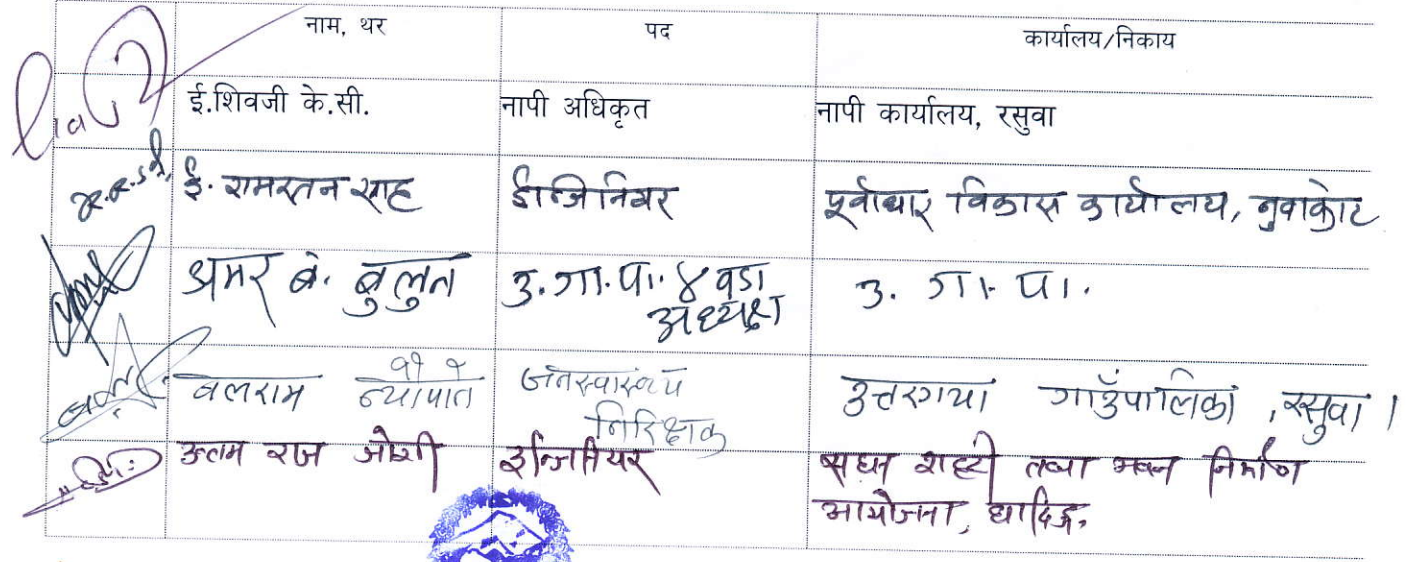 नाम, थर पद कार्यालय/निकाय
ई.शिवजी के.सी. नापी अधिकृत नापी कार्यालय, रसुवा
ई. रामरतन साह ईन्जिनियर पूर्वाधार विकास कार्यालय, नुवाकोट
अमर बं. बुलुन उ.गा.पा. ४ वडा उ. गा. पा.
अध्यक्ष
बलराम न्यौपाने जनस्वास्थ्य उत्तरगया गाउँपालिका, रसुवा।
निरिक्षक
उत्तम राज जोशी इन्जिनियर सघन शहरी तथा भवन निर्माण
आयोजना, धादिङ,